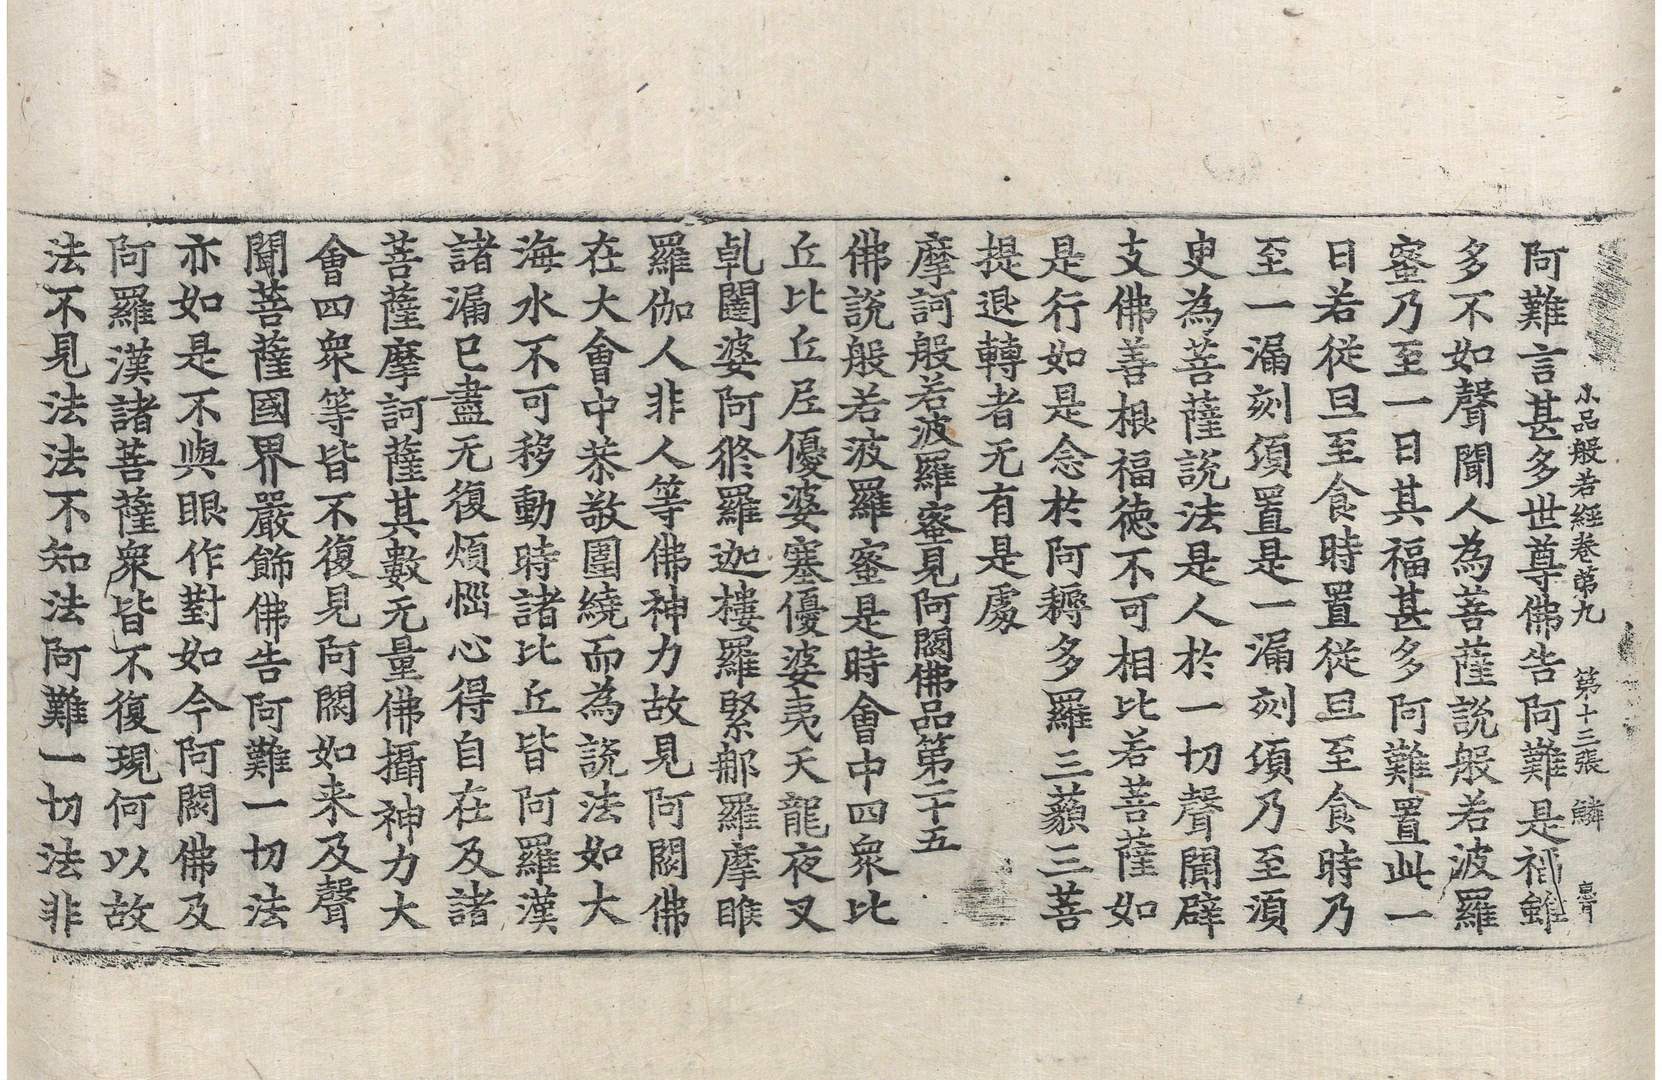 小品般若經卷第九　第十三張　鱗
阿難言甚多世尊佛告阿難是福雖
多不如聲聞人為菩薩說般若波羅
蜜乃至一日其福甚多阿難置此一
日若從旦至食時置從旦至食時乃
至一漏刻須置是一漏刻須乃至須
臾為菩薩說法是人於一切聲聞辟
支佛善根福德不可相比若菩薩如
是行如是念於阿耨多羅三藐三菩
提退轉者无有是處
摩訶般若波羅蜜見阿閦佛品第二十五
佛說般若波羅蜜是時會中四眾比
丘比丘尼優婆塞優婆夷天龍夜叉
乹闥婆阿修羅迦樓羅緊那羅摩睺
羅伽人非人等佛神力故見阿閦佛
在大會中恭敬圍繞而為說法如大
海水不可移動時諸比丘皆阿羅漢
諸漏已盡无復煩惱心得自在及諸
菩薩摩訶薩其數无量佛攝神力大
會四眾等皆不復見阿閦如来及聲
聞菩薩國界嚴飾佛告阿難一切法
亦如是不與眼作對如今阿閦佛及
阿羅漢諸菩薩眾皆不復現何以故
法不見法法不知法阿難一切法非